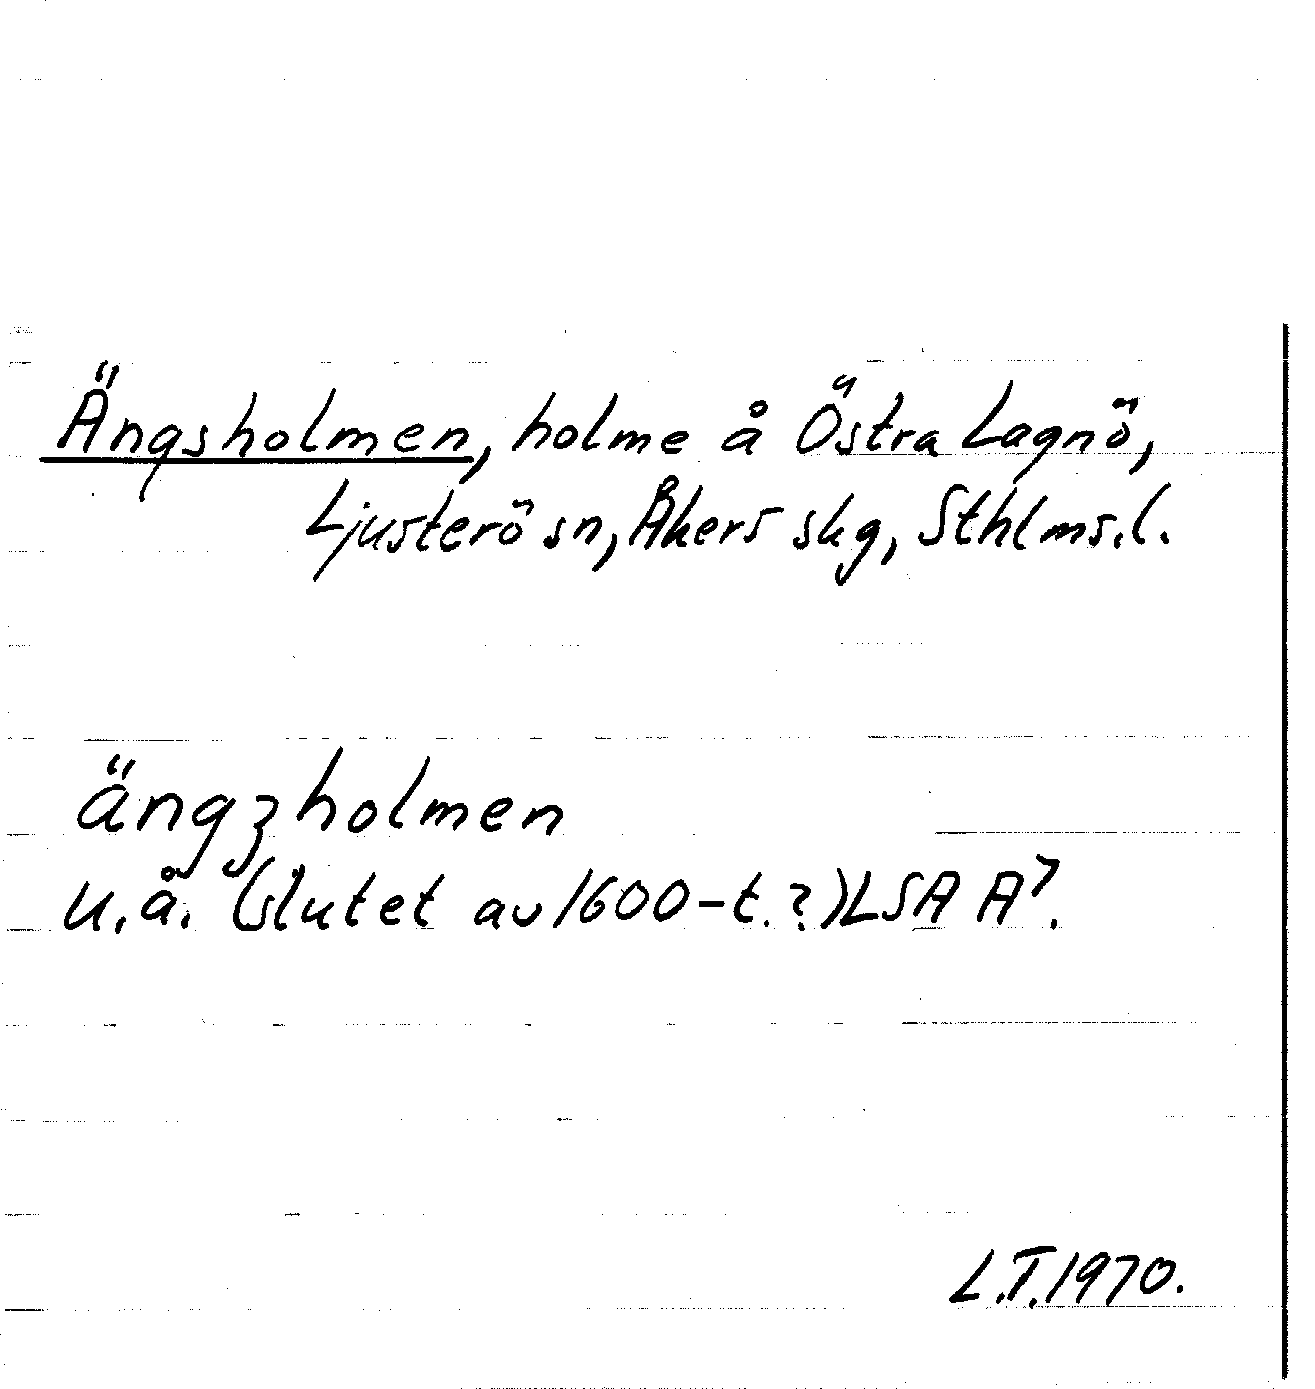 Ängsholmen, holme å Östra Lagnö,
Ljusterö sn, Åkers skg, Sthlms.l.
ängzholmen
u.å. (slutet av 1600-t.?) LSA A7.
L.T. 1970.